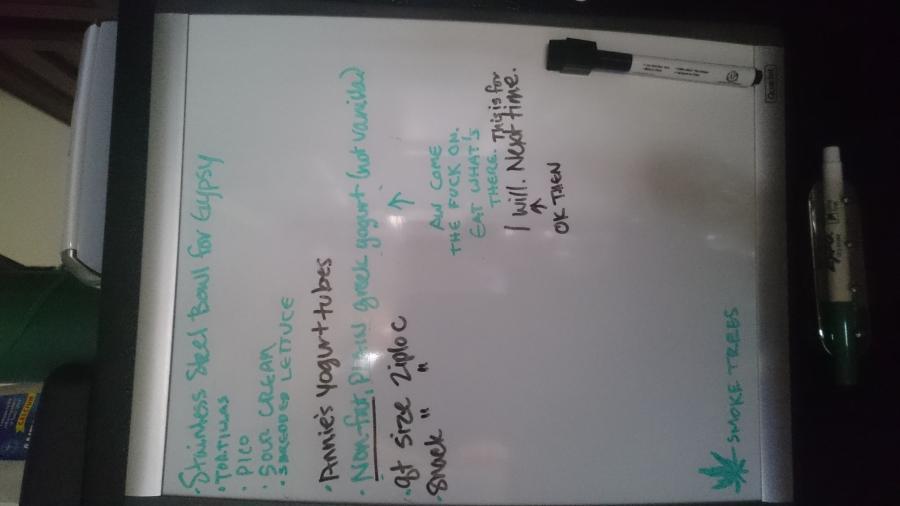 • Stainless Steel Bowl for Gypsy
• TORTILLAS
• PICO
• SOUR CREAM
• SHREDDED LETTUCE
• Annie's Yogurt tubes
• Non-fat, PLAIN greek yogurt (not vanilla)
• qt size Ziploc
• Snack " "
AW COME
THE FUCK ON.
EAT WHAT'S
THERE. This is for
I will. Next time.
OK THEN
SMOKE TREES
Quartet